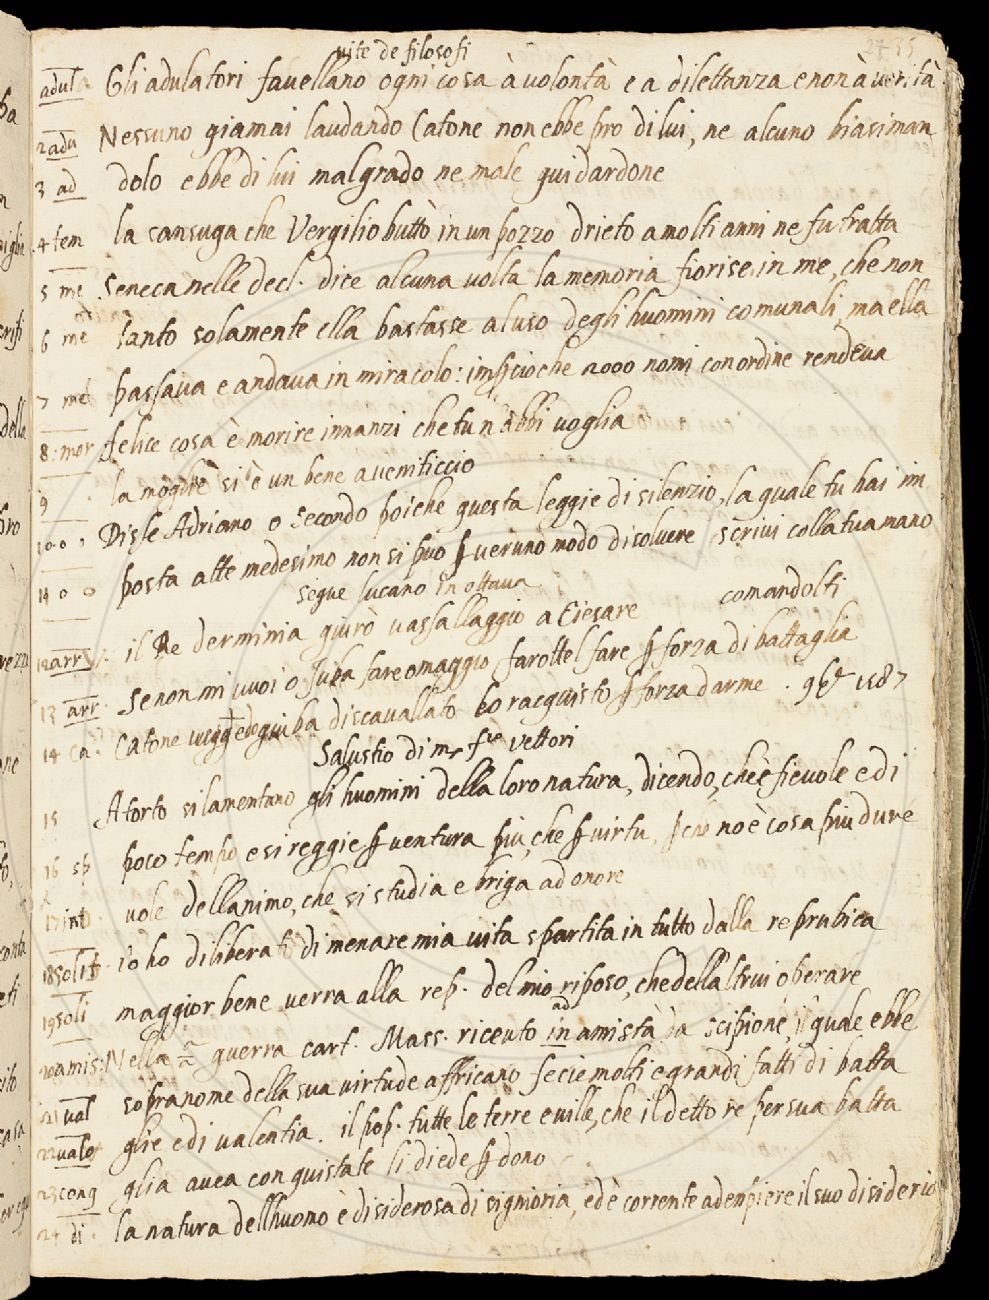 2435
vite de filosofi
adula Gli adulatori favellano ogni cosa à volontà e a dilettanza e non à verità
2 adu Nessuno giamai laudando Catone non ebbe pro di lui, ne alcuno biasiman
3 ad dolo ebbe di lui malgrado ne male guidardone
4 tem la sansuga che Vergilio buttò in un pozzo drieto a molti anni ne fu tratta
5 me Seneca nelle decl. dice alcuna volta la memoria fiorise in me, che non
6 me tanto solamente ella bastasse al uso degli huomini comunali, ma ella
7 me passava e andava in miracolo: che 2000 nomi con ordine rendeva
8 mor felice cosa è morire innanzi che tu n abbi voglia
9 la moglie si è un bene aveniticcio
10 o Disse Adriano o Secondo poiche questa leggie di silenzio, la quale tu hai in
11 o o posta atte medesimo non si puo ꝑ veruno modo disolvere scrivi colla tua mano
segue lucano in ottava comandolti
12 arr il Re derminia giurò vassallaggio a Ciesare
13 arr se non mi vuoi o Juba fare omaggio farottel fare ꝑ forza di battaglia
14 Ca Catone discavallato lo racquisto ꝑ forza darme . 1587
Salustio di mr vettori
15 A torto si lamentano gli huomini della loro natura, dicendo, che è fievole e di
16 sp poco tempo e si reggie ꝑ ventura più, che ꝑ virtu, no è cosa più dure
17 int vole dellanimo, che si studia e briga ad onore
18 solit io ho diliberato di menare mia vita spartita in tutto dalla reprubica
19 soli maggior bene verra alla rep. del mio riposo, che della ltrui operare
ad
20 amis: Nella 2a guerra cart. Mass. riceuto in amistà da Scipione, il quale ebbe
21 val sopranome della sua virtude affricano fecie molti e grandi fatti di batta
22 valo glie e di valentia. il pop. tutte le terre e ville, che il detto re per sua batta
23 conq glia avea conquistate li diede ꝑ dono
24 di la natura dellhuono è disiderosa di signioria, ed è corrente ad enpiere il suo disiderio